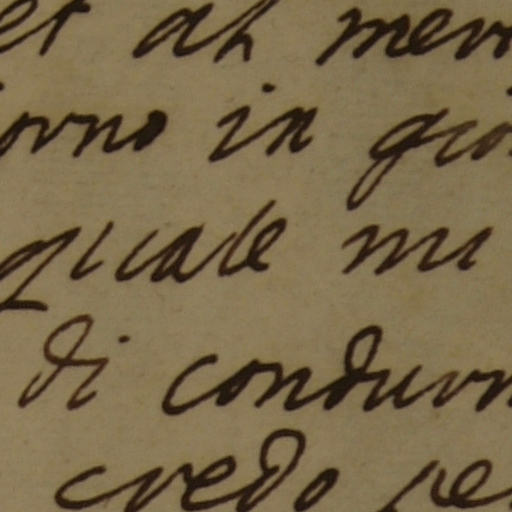 et al mer
orno in gio
quale mi
di condur
credo pe